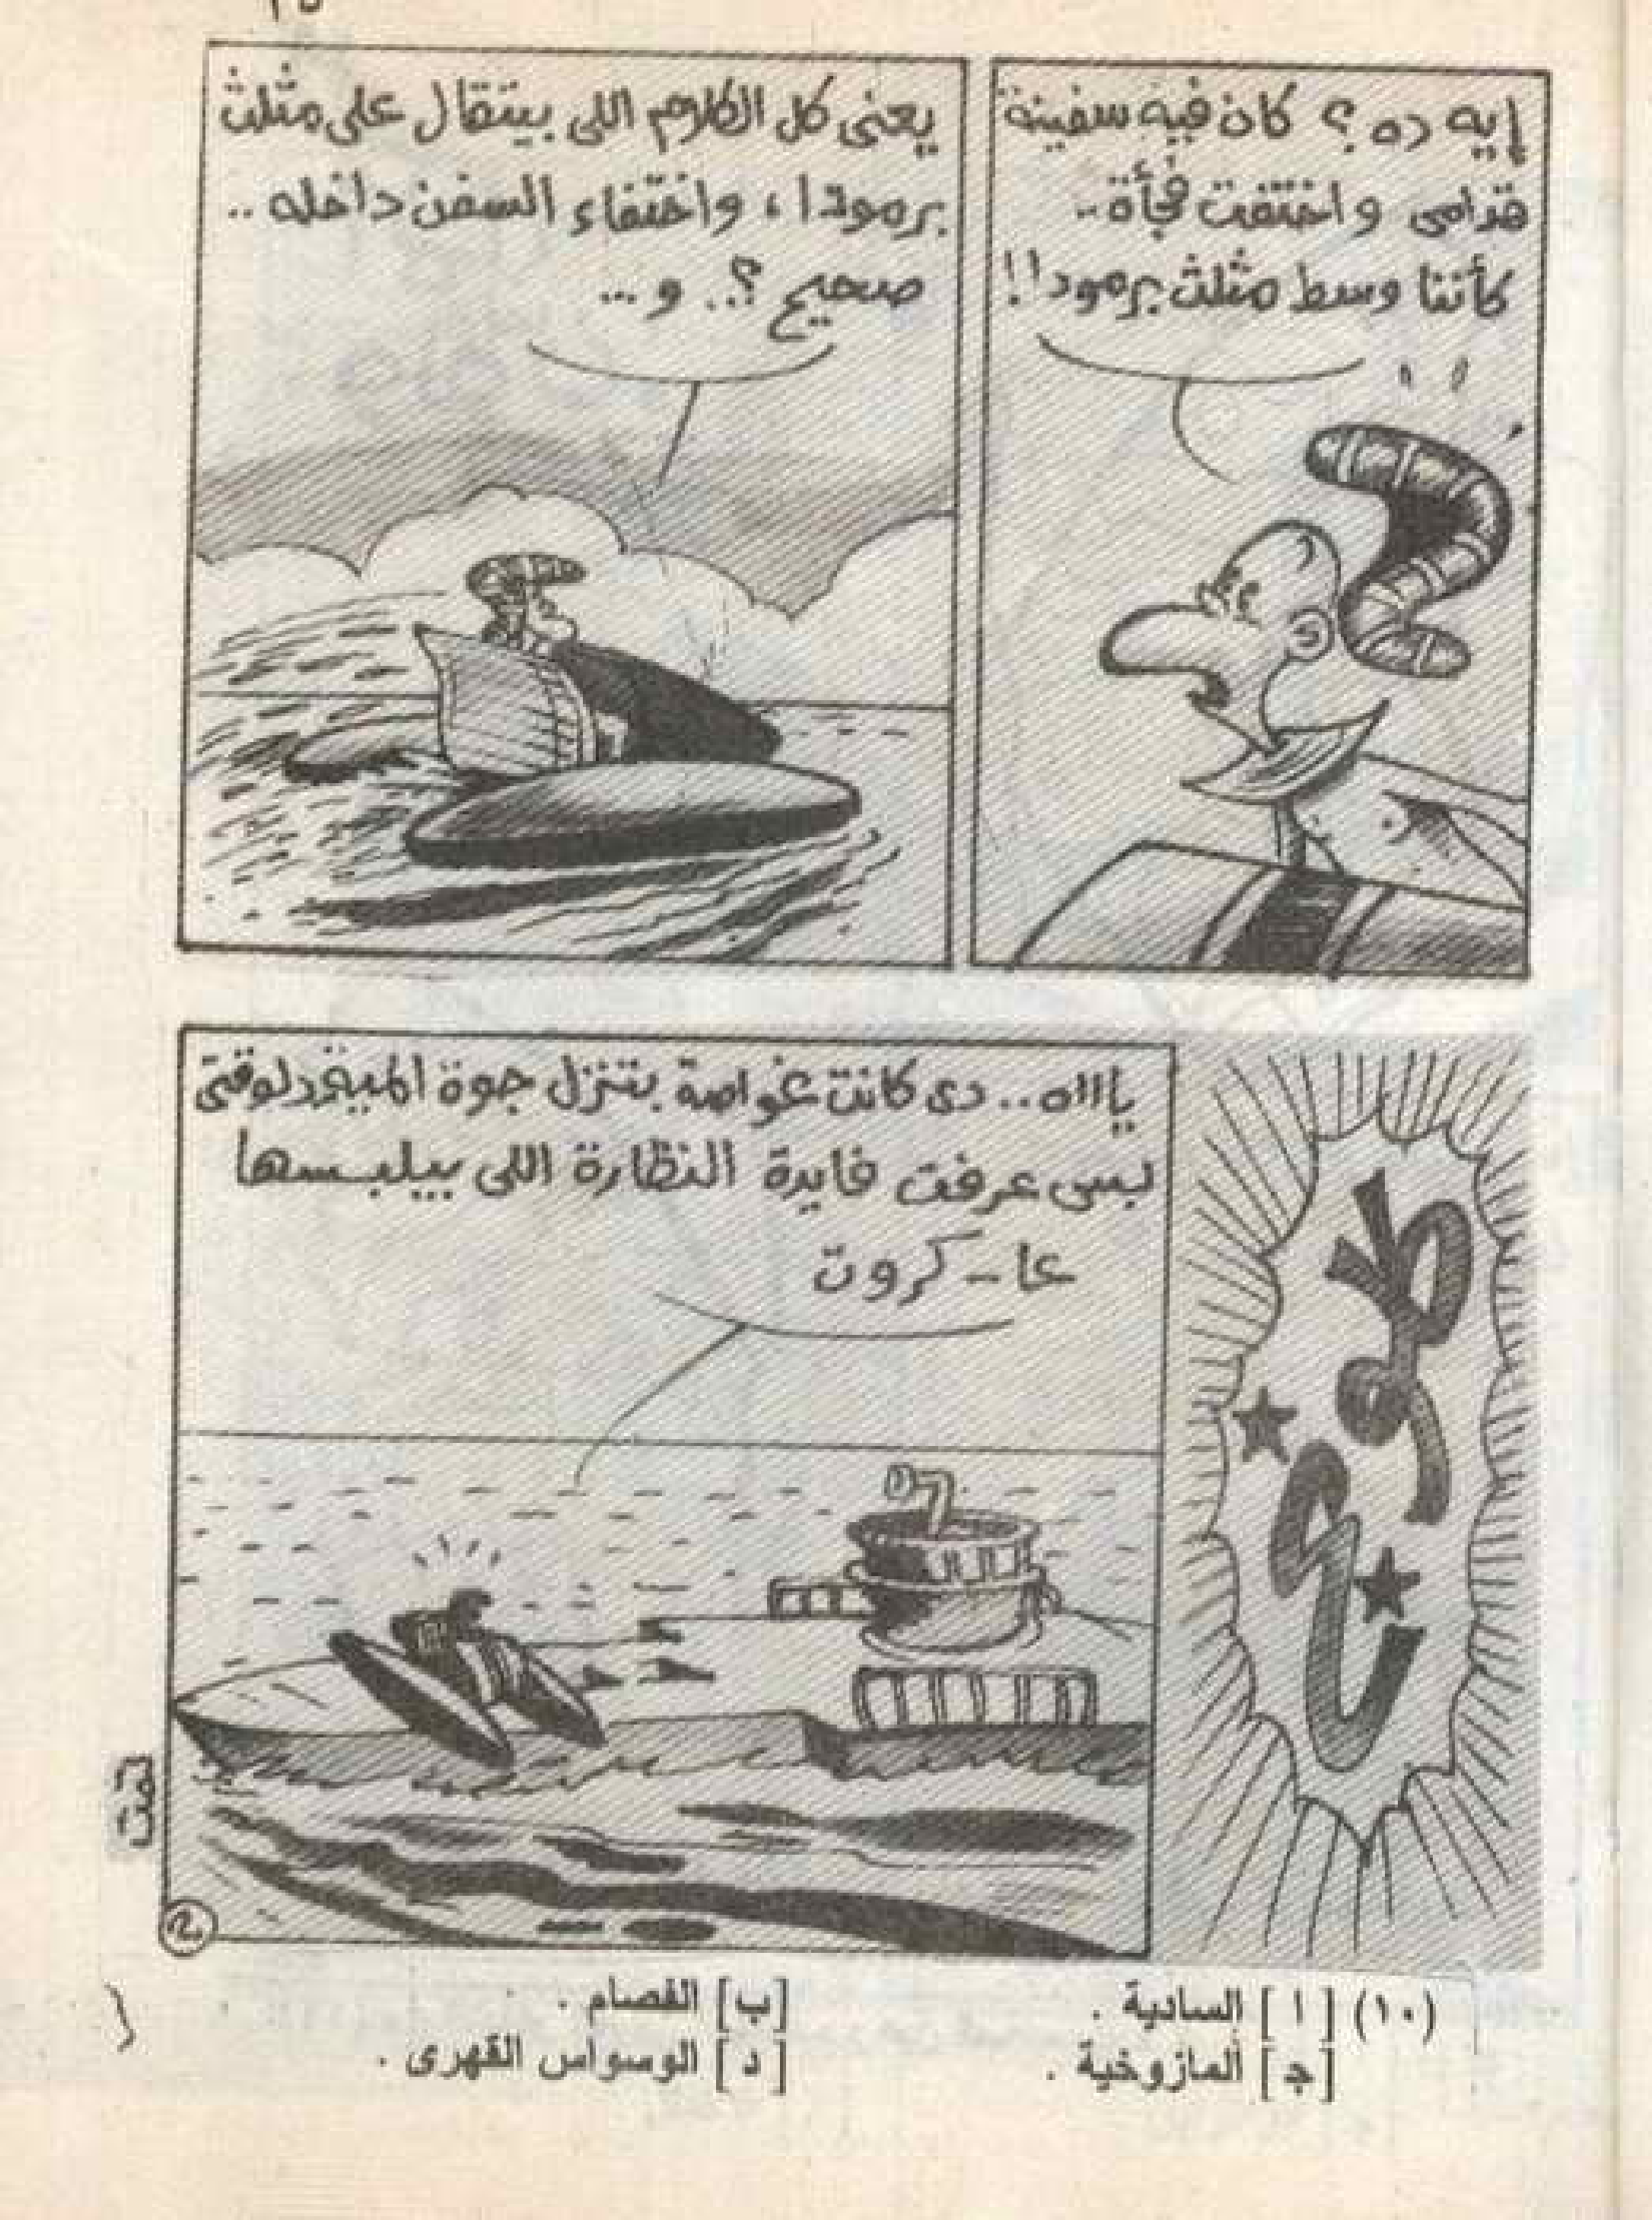 إيه ده ؟ كان فيه سفينة
قدامى واختفت فجأة..
كأننا وسط مثلث برمودا!!
يعنى كل الكلام اللى بيتقال على مثلث
برمودا، واختفاء السفن داخله ..
صحيح ؟.. و...
طوخ
يااااه.. دى كانت غواصة بتنزل جوة المية.. دلوقتى
بس عرفت فايدة النظارة اللى بيلبسها
عا - كروت
تمت
٢
(١٠) [ ا ] السادية .
[ب] الفصام .
[ج] المازوخية .
[د] الوسواس القهرى .